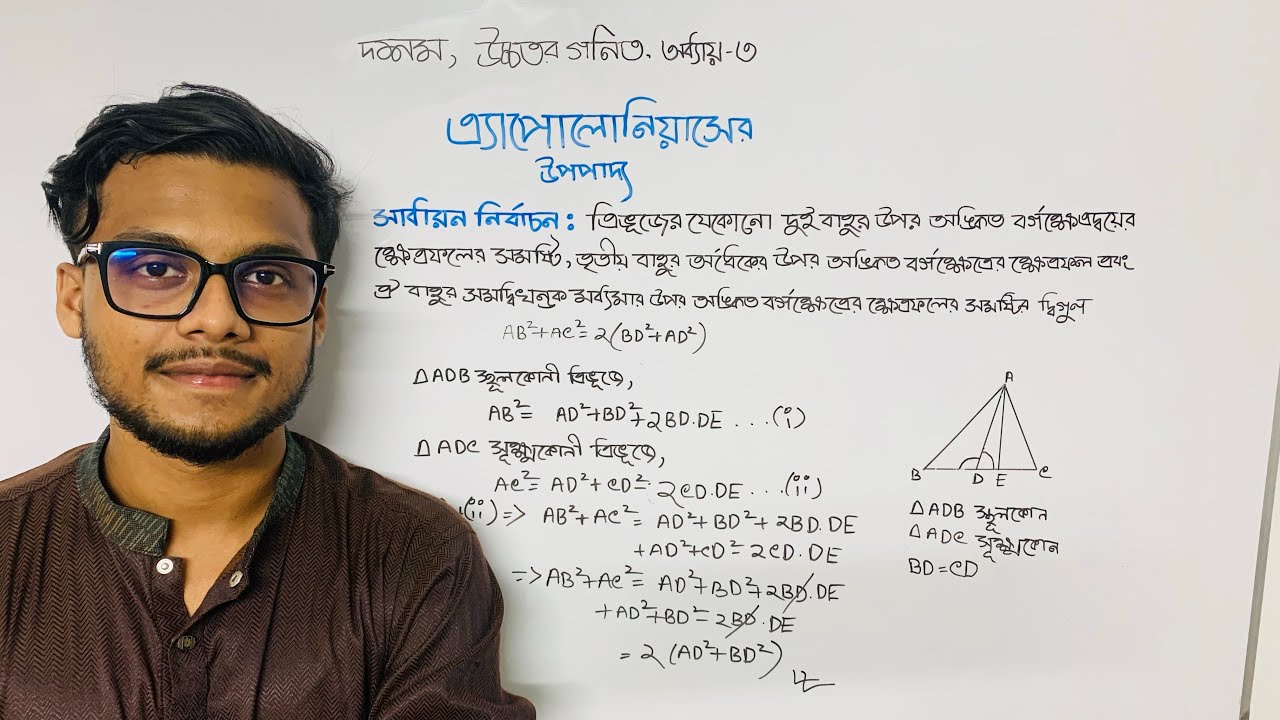 দশম, উচ্চতর গনিত. অধ্যায়-৩
এ্যাপোলোনিয়াসের
উপপাদ্য
সাধারন নির্বাচন: ত্রিভূজের যেকোনো দুই বাহুর উপর অঙ্কিত বর্গক্ষেত্রদ্বয়ের
ক্ষেত্রফলের সমষ্টি, তৃতীয় বাহুর অর্ধেকের উপর অঙ্কিত বর্গক্ষেত্রের ক্ষেত্রফল এবং
ঐ বাহুর সমদ্বিখন্ডক মধ্যমার উপর অঙ্কিত বর্গক্ষেত্রের ক্ষেত্রফলের সমষ্টির দ্বিগুন
AB²+AC²=2(BD²+AD²)
△ADB স্থূলকোনী ত্রিভূজে,
AB²= AD²+BD²+2BD.DE ...(i)
△ADC সূক্ষ্মকোনী ত্রিভূজে,
AC²=AD²+CD²-2CD.DE ...(ii)
(ii)=> AB²+AC²=AD²+BD²+2BD.DE
+AD²+CD²-2CD.DE
=>AB²+AC²=AD²+BD²+2BD.DE
+AD²+BD²-2BD.DE
=2(AD²+BD²)
A
B D E C
△ADB স্থূলকোন
△ADC সূক্ষ্মকোন
BD=CD